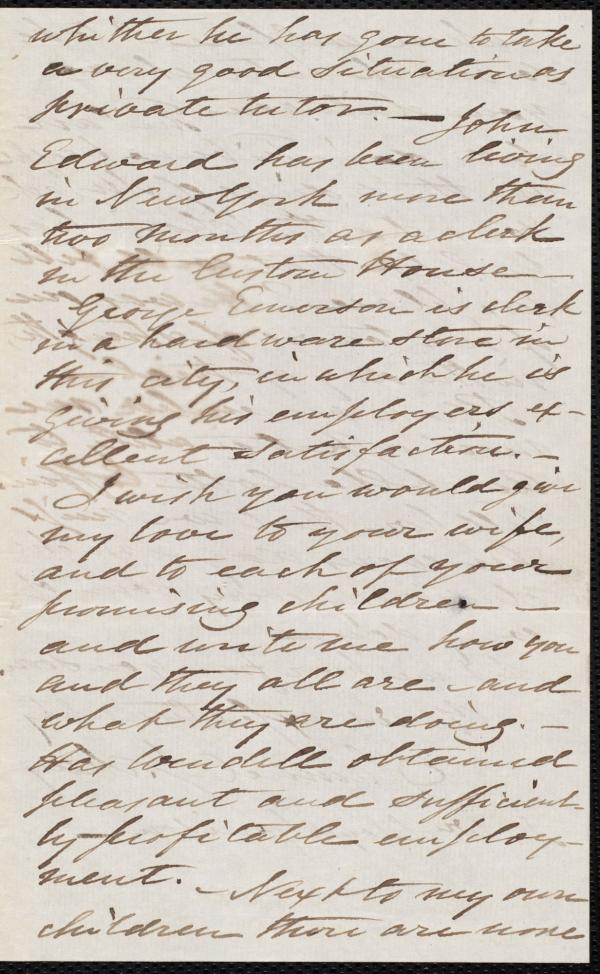 whither he has gone to take
a very good situation as
private tutor. — John
Edward has been living
in New York more than
two months as a clerk
in the Custom House —
George Emerson is clerk
in a hardware store in
this city, in which he is
giving his employers ex-
cellent satisfaction. —
I wish you would give
my love to your wife,
and to each of your
promising children —
and write me how you
and they all are - and
what they are doing. —
Has Wendell obtained
pleasant and sufficient-
ly profitable employ-
ment. — Next to my own
children there are none